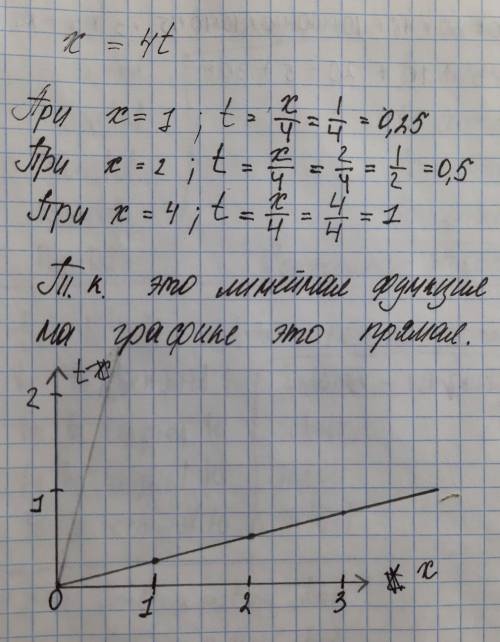 x = 4t
При x = 1 ; t = x/4 = 1/4 = 0,25
При x = 2 ; t = x/4 = 2/4 = 1/2 = 0,5
При x = 4 ; t = x/4 = 4/4 = 1
Т. к. это линейная функция
на графике это прямая.
t
2
1
0 1 2 3 x